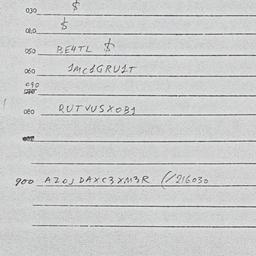 030 $
040 $
050 BE4TL $
060 1MC1GRU1T
090
080 RUTVUSXOB1
900 AZOJDAXC3XM3R (/216030